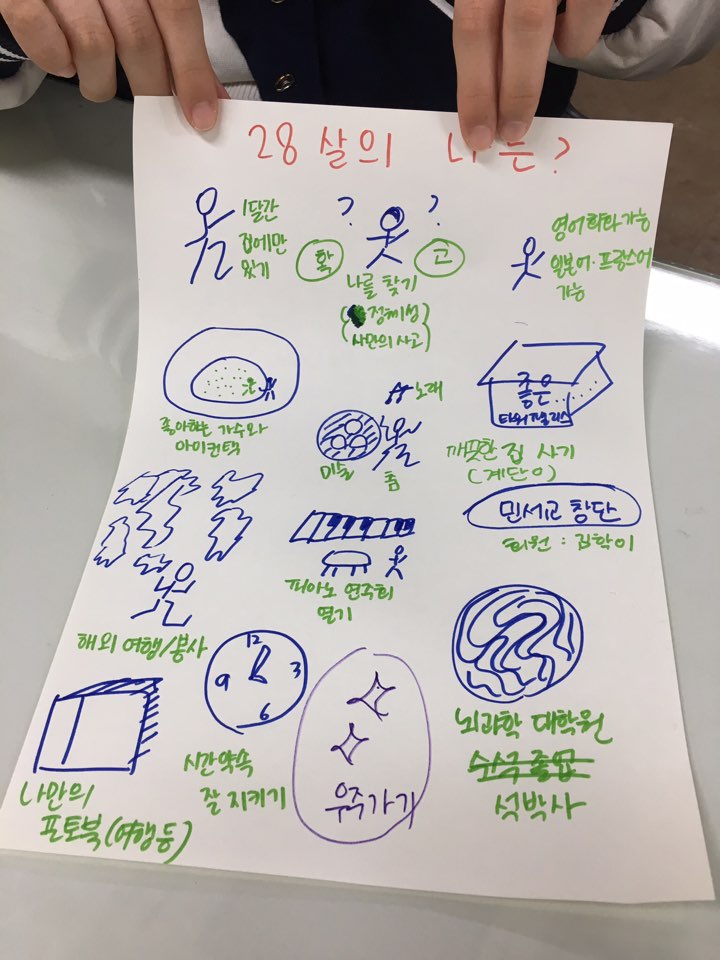 28 살의 나는?
1달간
집에만
있기
?
?
확
고
나를 찾기
(정체성)
(사만의 사고)
영어회화가능
일본어·프랑스어
가능
좋아하는 가수와
아이컨택
노래
미술
춤
좋은
타워팰리스
깨끗한 집 사기
(계단 0)
민세교 창단
회원 : 김학이
해외 여행/봉사
피아노 연주회
열기
12
9
3
6
시간약속
잘 지키기
우주가기
뇌과학 대학원
수석 졸업
석박사
나만의
포토북(여행등)